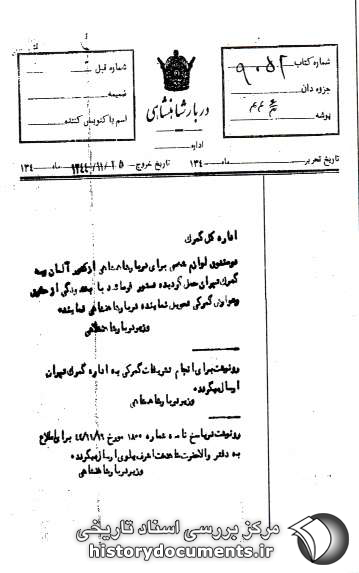 شماره کتاب ۹۰۵۲
جزوه دان
پوشه
شماره قبل
ضمیمه
اسم پاکنویس کننده
دربار شاهنشاهی
اداره
تاریخ تحریر ماه ۱۳۴ تاریخ خروج ۱۳۴۴/۱۱/۲۵ ماه ۱۳۴
اداره کل گمرک
دو صندوق لوازم شخصی برای دربار شاهنشاهی از کشور آلمان به
گمرک تهران حمل گردیده دستور فرمائید با بخشودگی از حقوق
وعوارض گمرکی تحویل نماینده دربار شاهنشاهی نمایند
وزیر دربار شاهنشاهی
رونوشت برای انجام تشریفات گمرکی به اداره گمرک تهران
ارسال میگردد
وزیر دربار شاهنشاهی
رونوشت در پاسخ نامه شماره ۱۸۰۰ مورخ ۴۴/۱۱/۱۶ برای اطلاع
به دفتر والاحضرت شاهدخت اشرف پهلوی ارسال میگردد
وزیر دربار شاهنشاهی
مرکز بررسی اسناد تاریخی
historydocuments.ir